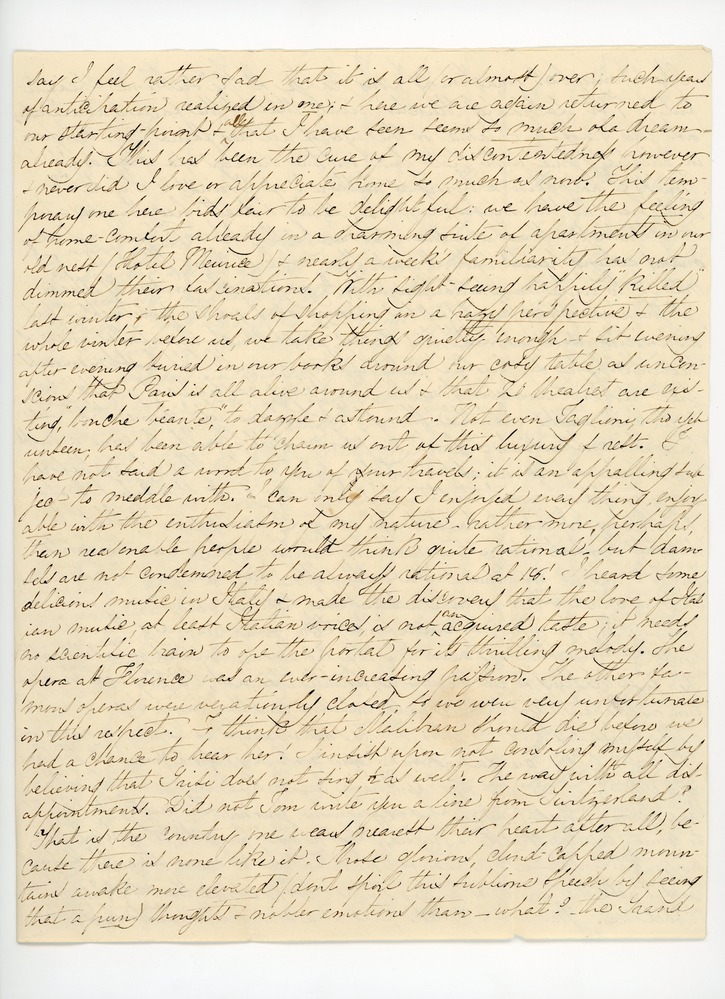 say I feel rather sad that it is all (or almost) over; such years
of anticipation realized in one; & here we are again returned to
our starting-point & all that I have seen seems so much of a dream
already. This has been the cure of my discontentedness however
& never did I love or appreciate home so much as now. This tem-
porary one here bids fair to be delightful: we have the feeling
of home-comfort already in a charming suite of apartments in our
old nest (Hotel Meurice) & nearly a week's familiarity has not
dimmed their fascinations. With sight-seeing happily "killed"
last winter & the shoals of shopping in a hazy perspective & the
whole winter before us, we take things quietly enough & sit evening
after evening buried in our books around our cosy table as uncon-
scious that Paris is all alive around us & that 20 theatres are exis-
ting, "bouche béante," to dazzle & astound. Not even Taglioni, tho yet
unseen, has been able to charm us out of this luxury of rest. I
have not said a word to you of our travels; it is an appalling sub
ject to meddle with. I can only say I enjoyed every thing enjoy-
able with the enthusiasm of my nature - rather more, perhaps,
than reasonable people would think quite rational, but dam-
sels are not condemned to be always rational at 16! I heard some
delicious music in Italy & made the discovery that the love of Ital
ian music, at least Italian voices, is not an acquired taste; it needs
no scientific train to ope the portal for its thrilling melody. The
opera at Florence was an ever-increasing passion. The other fa-
mous operas were vexatiously closed, so we were very unfortunate
in this respect. To think that Malibran should die before we
had a chance to hear her! I insist upon not consoling myself by
believing that Grisi does not sing as well. The way with all dis-
appointments. Did not Tom write you a line from Switzerland?
That is the country one wears nearest their heart after all, be-
cause there is none like it. Those glorious, cloud-capped moun-
tains awake more elevated (don't spoil this sublime speech by seeing
that a pun) thoughts & nobler emotions than - what? the grand